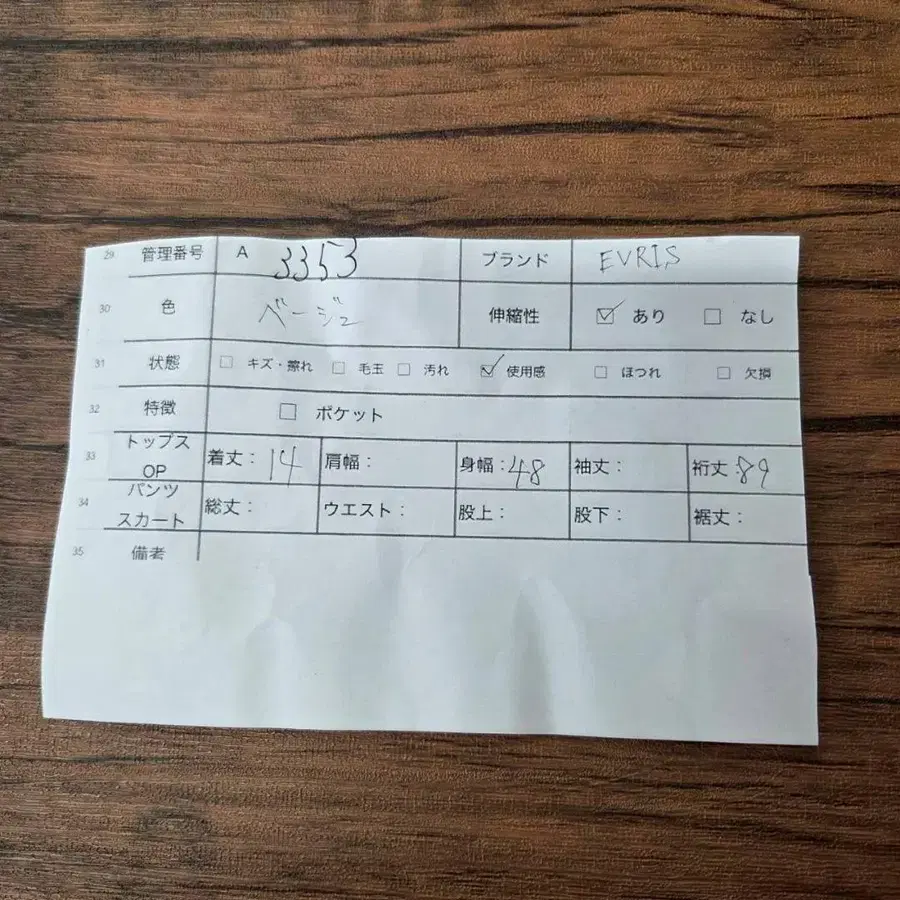 29 管理番号 A 3353 ブランド EVRIS
30 色 ベージュ 伸縮性 ☑ あり ☐ なし
31 状態 ☐ キズ・擦れ ☐ 毛玉 ☐ 汚れ ☑ 使用感 ☐ ほつれ ☐ 欠損
32 特徴 ☐ ポケット
33 トップス OP 着丈: 14 肩幅: 身幅: 48 袖丈: 裄丈: 89
34 パンツ スカート 総丈: ウエスト: 股上: 股下: 裾丈:
35 備考